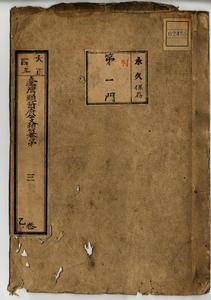 永久保存
第一門
大正
臺灣總督府公文類纂
三
乙卷